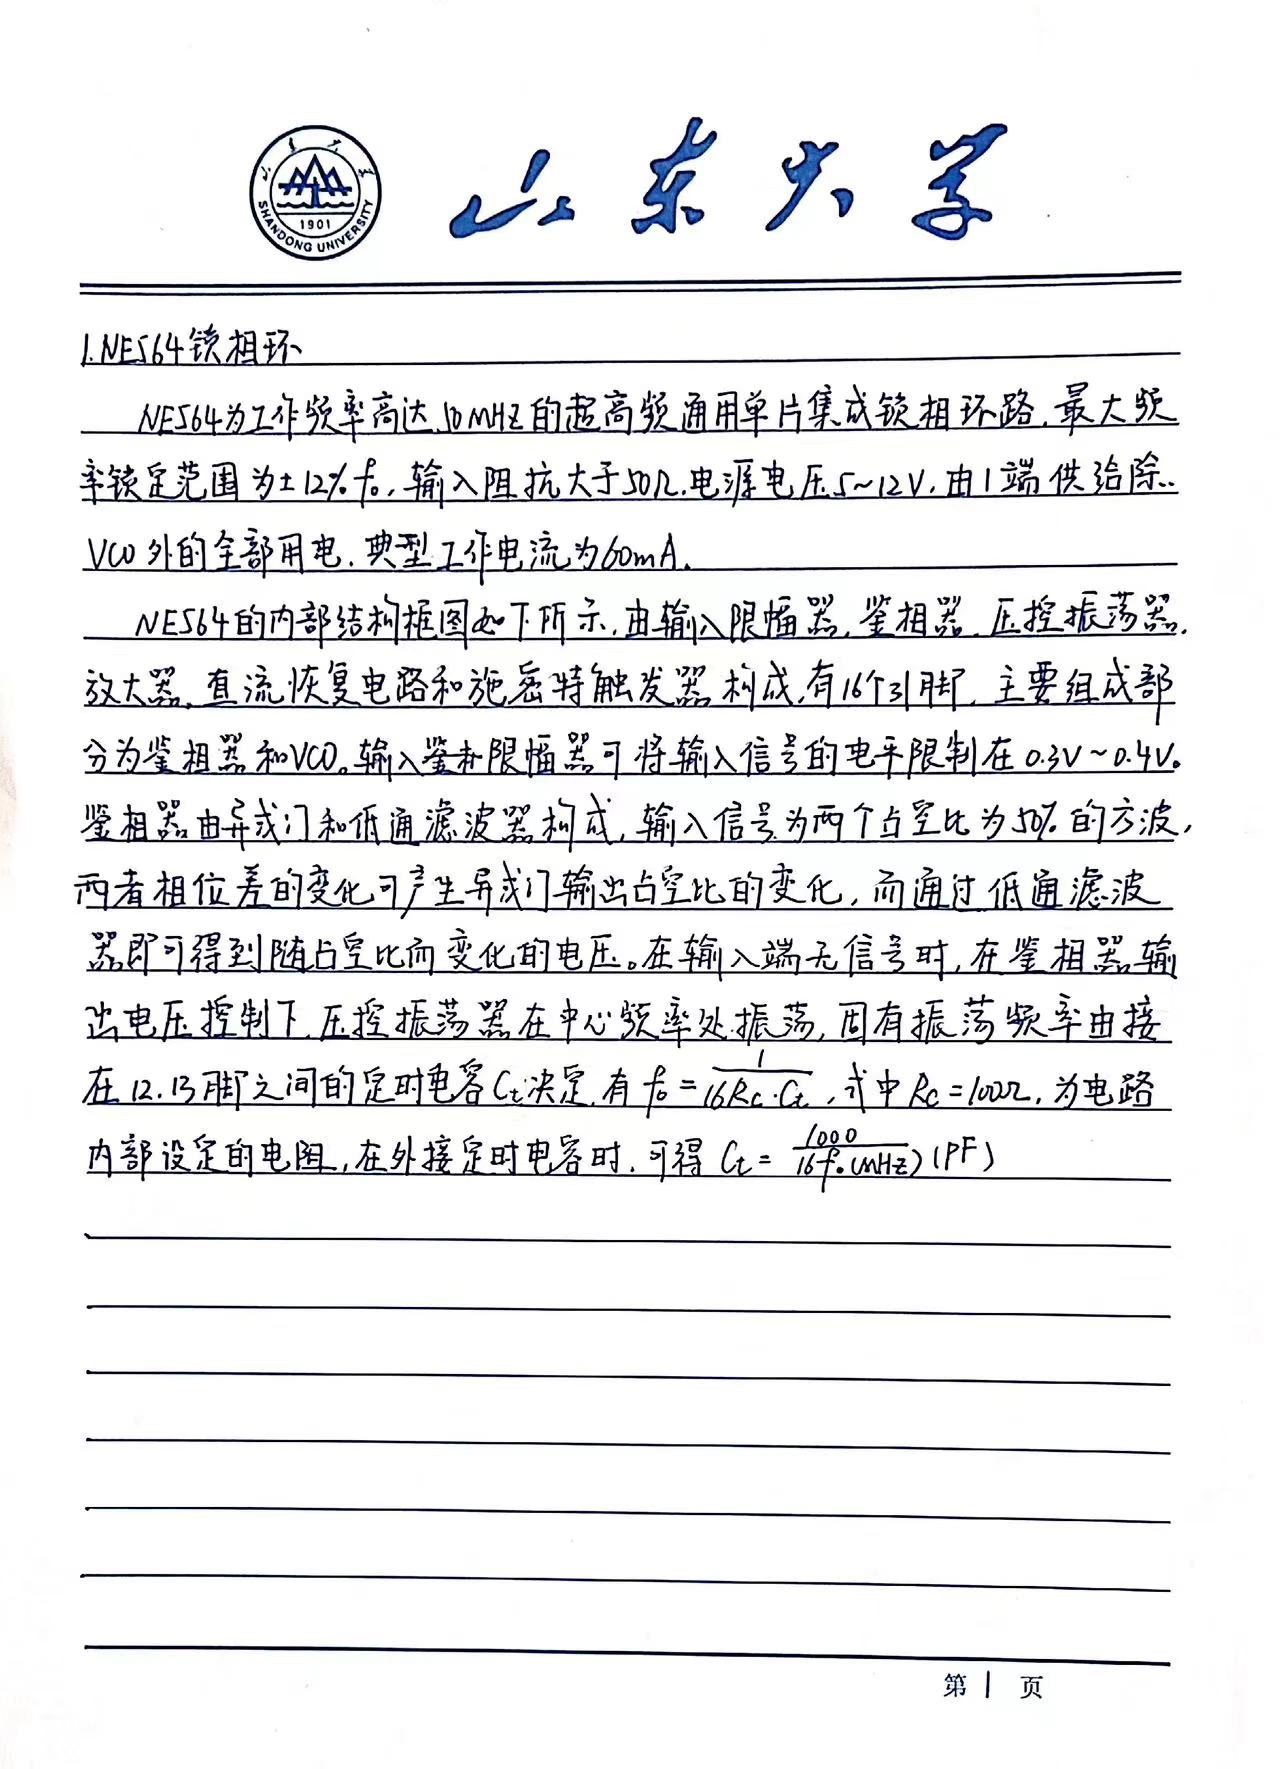 山东大学
SHANDONG UNIVERSITY
1901
山东大学
1.NE564锁相环
NE564为工作频率高达50MHZ的超高频通用单片集成锁相环路.最大频
率锁定范围为±12%f₀,输入阻抗大于50Ω.电源电压5~12V,由1端供给除
VCO外的全部用电.典型工作电流为60mA.
NE564的内部结构框图如下所示,由输入限幅器,鉴相器,压控振荡器,
放大器,直流恢复电路和施密特触发器构成,有16个引脚,主要组成部
分为鉴相器和VCO。输入限幅器可将输入信号的电平限制在0.3V~0.4V。
鉴相器由异或门和低通滤波器构成,输入信号为两个占空比为50%的方波,
两者相位差的变化可产生异或门输出占空比的变化,而通过低通滤波
器即可得到随占空比而变化的电压。在输入端无信号时,在鉴相器输
出电压控制下,压控振荡器在中心频率处振荡,固有振荡频率由接
在12.13脚之间的定时电容Ct决定,有f₀=1/(16Rc·Ct),式中Rc=100Ω,为电路
内部设定的电阻,在外接定时电容时,可得Ct=1000/(16f₀(MHZ))(PF)
第1页